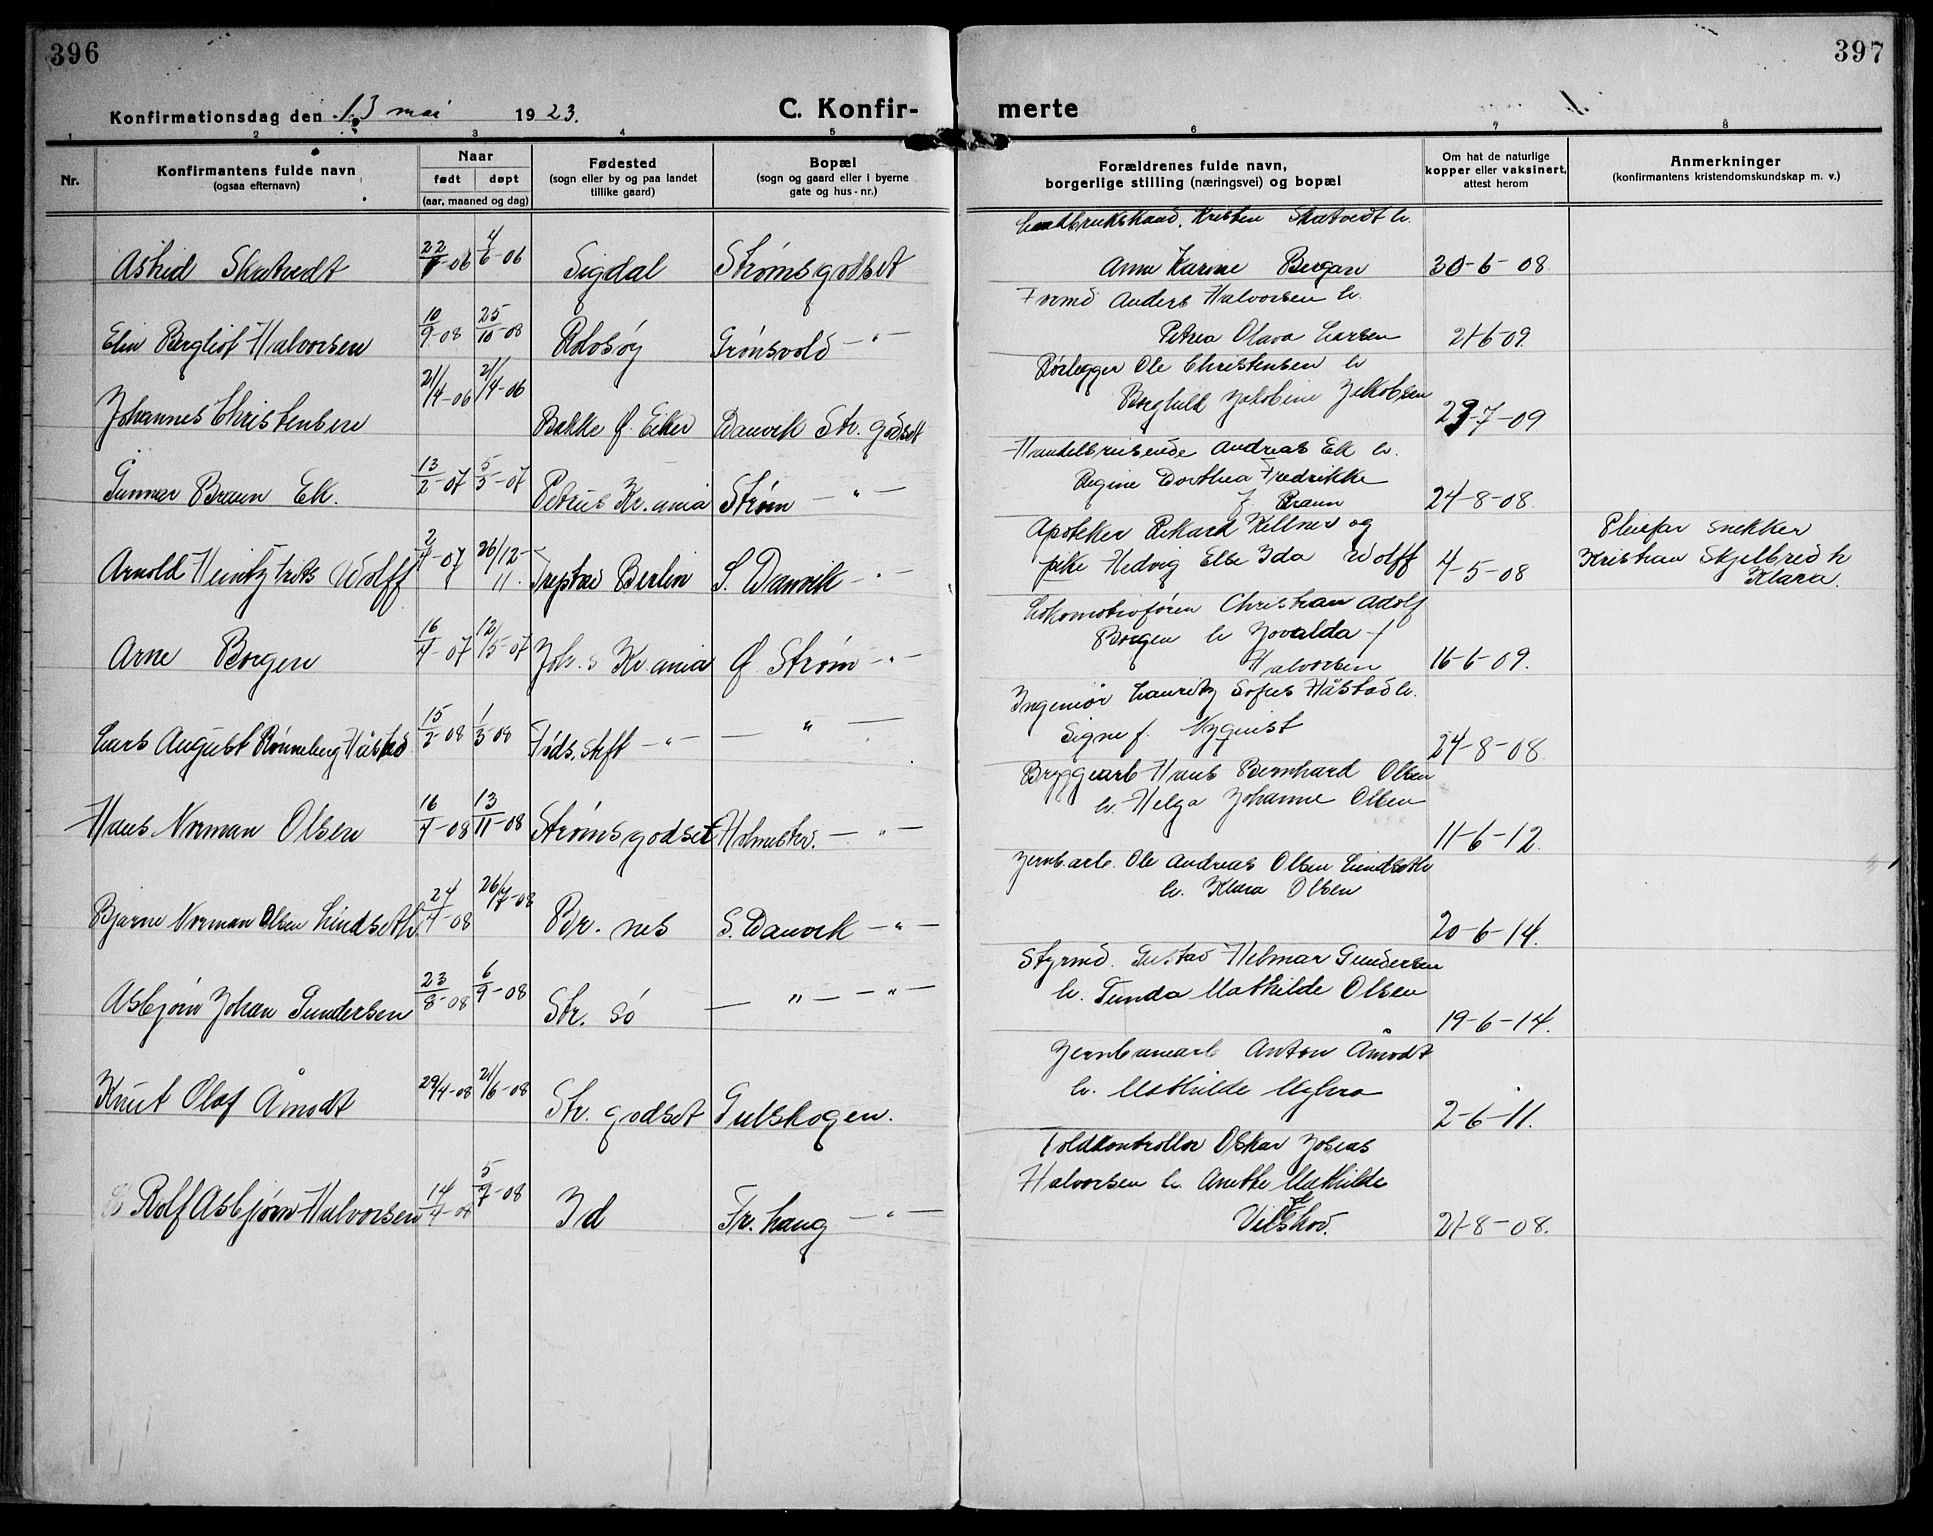 396
397
Konfirmationsdag den 13 mai 1923.
C. Konfirmerte
1 2 3 4 5 6 7 8
Nr.
Konfirmantens fulde navn
(ogsaa efternavn)
Naar
født døpt
(aar, maaned og dag)
Fødested
(sogn eller by og paa landet
tillike gaard)
Bopæl
(sogn og gaard eller i byerne
gate og hus-nr.)
Forældrenes fulde navn,
borgerlige stilling (næringsvei) og bopæl
Om hat de naturlige
kopper eller vaksinert,
attest herom
Anmerkninger
(konfirmantens kristendomskundskap m. v.)
Kristen Skatvedt h.
Astrid Skatvedt 22 -06 4/6-06 Sigdal Strømsgodset Anne Karine Bergan 30-6-08
Formd Anders Halvorsen h.
Elin Bergliot Halvorsen 10/9-08 25/10-08 Grønvold —"— Petrea Olava Larsen 21-6-09.
Rørlegger Ole Christensen h
Johannes Christensen 21/4-06 21/4-06 Bakke Ø. Eiker Danvik Str. godset Borghild Jakobine Jakobsen 29-7-09
Handelsreisende Andreas Ek h.
Gunnar Braun Ek. 13/2-07 5/5-07 Petrus Kr.ania Strøm —"— Regine Dorthea Fredrikke
f Braun 24-8-08.
Apoteker Rikard Killner og
Arnold Heintz Frits Wolff 2/4-07 26/12-11. Treptow Berlin S. Danvik —"— pike Hedvig Else Ida Wolff 4-5-08
Pleiefar snekker
Kristian Skjelbred h
Klara.
Lokomotivfører Christian Adolf
Arne Borgen 16/4-07 12/5-07 Joh. s Kr.ania Ø. Strøm —"— Borgen h Jovalda f
Halvorsen 16-6-09.
Ingeniør Lauritz Sofus Håstad h.
Lars August Rønneberg Håstad 15/2-08 1/3 08 Føds. stift —"— — " — Signe f. Nyquist 24-8-08.
Bryggearb Hans Bernhard Olsen
Hans Norman Olsen 16/4-08 13/11-08 Strømsgodset —"— h. Helga Johanne Olsen 11-6-12.
Jernb.arb. Ole Andreas Olsen Lindseth
h. Klara Olsen
Bjarne Norman Olsen Lindseth. 24/4-08 26/7-08 Br. nes S. Danvik —"— 20-6-14.
Styrmd. Gustav Helmar Gundersen
Asbjørn Johan Gundersen 23/8-08 6/9-08 Str. sø — " — —"— h. Gunda Mathilde Olsen 19-6-14.
Jernbanearb Anton Åmodt
Knut Olaf Åmodt 29/4-08 21/6-08 Str. godset Gulskogen. h. Mathilde Myhra 2-6-11.
Toldkontrollør Oskar Josias
Halvorsen h. Anette Mathilde
Rolf Asbjørn Halvorsen 14/4-08 5 -08 Id Fr. haug —"— 21-8-08.